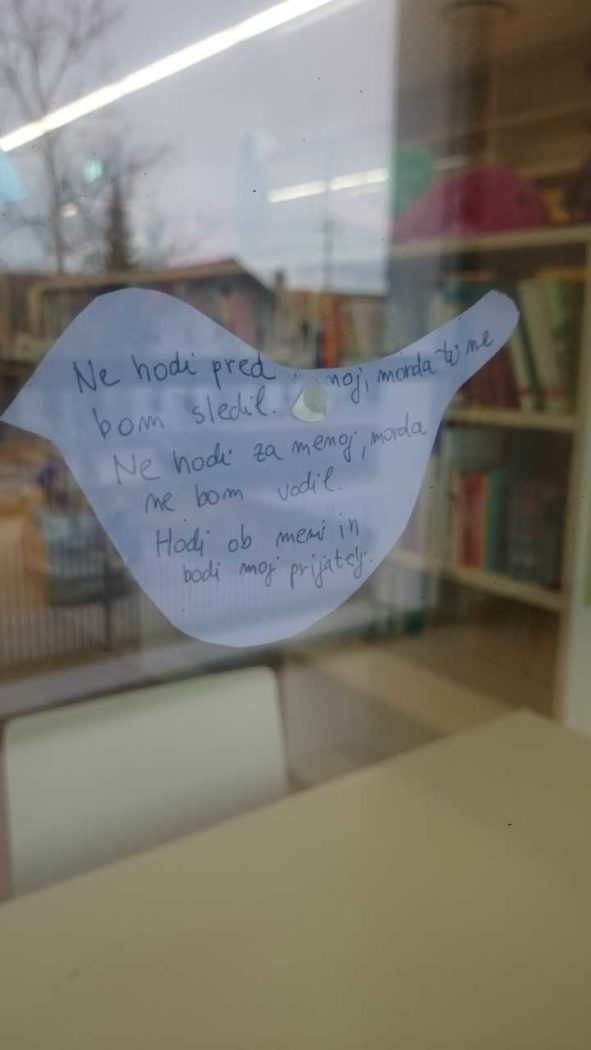 Ne hodi pred noj, morda ti ne
bom sledil.
Ne hodi za menoj, morda
ne bom vodil.
Hodi ob meni in
bodi moj prijatelj.